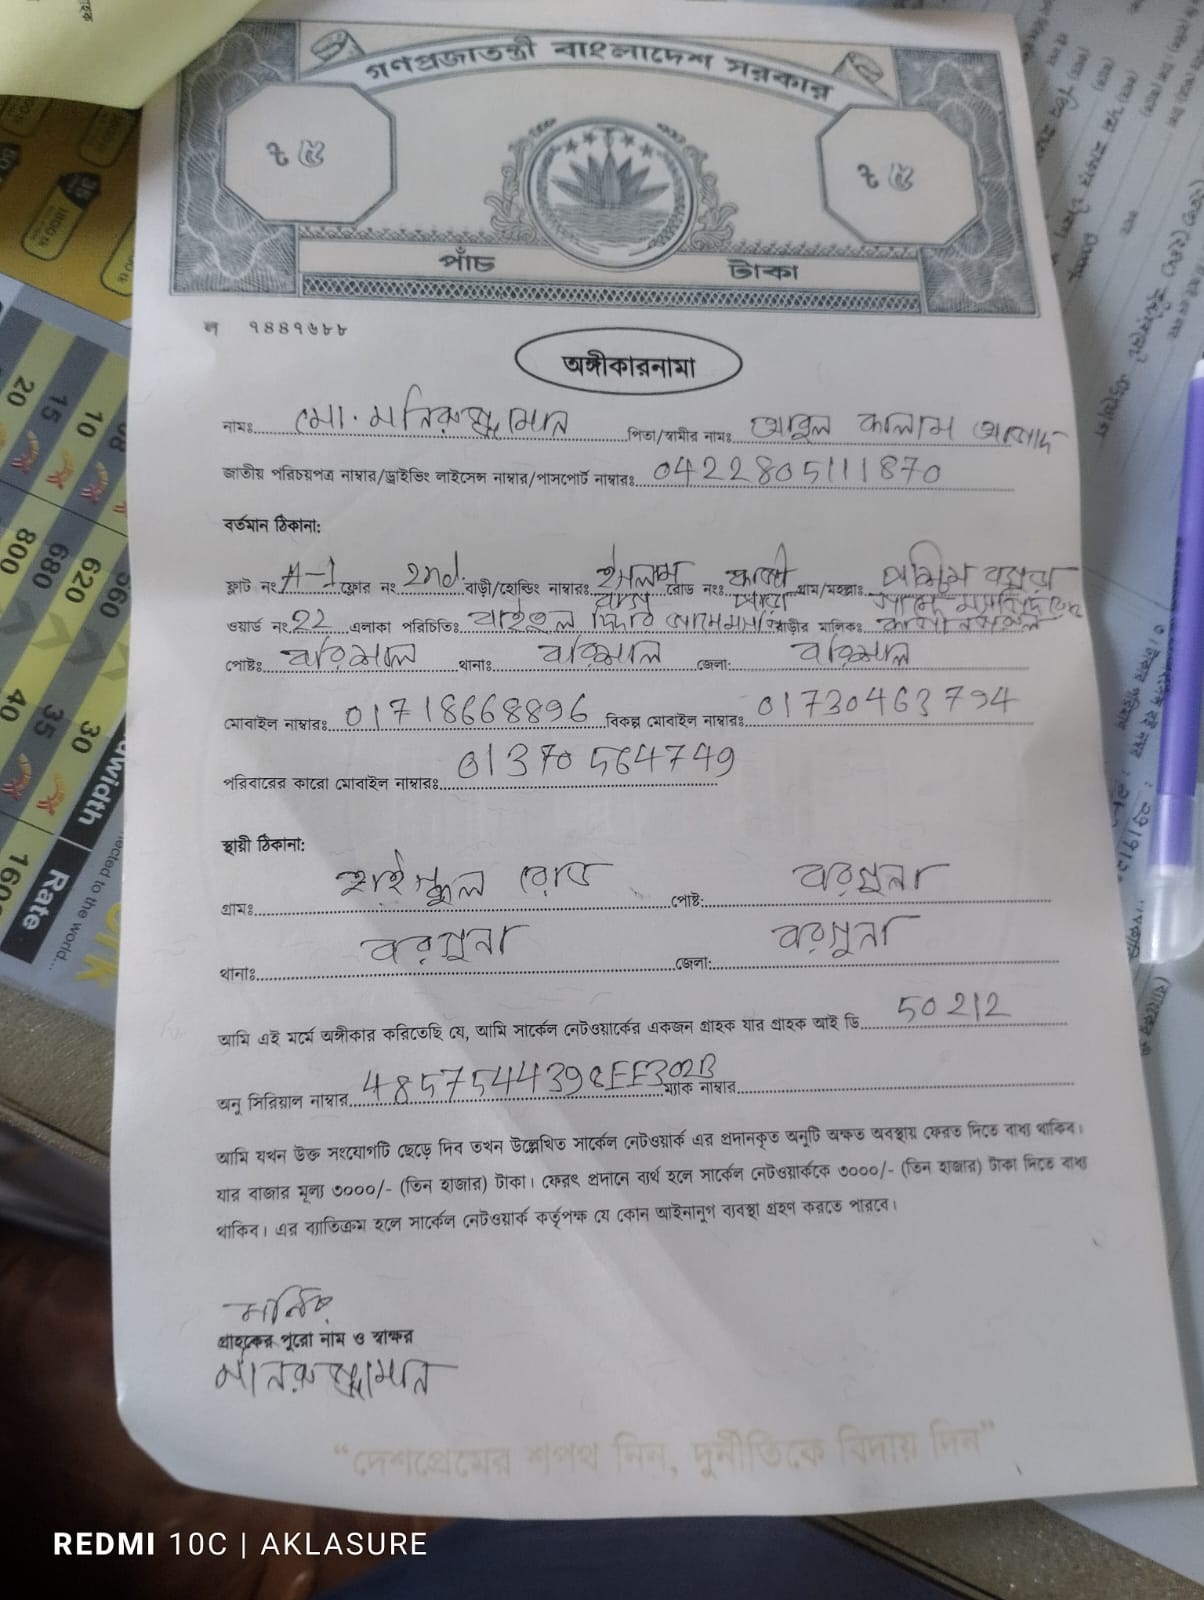 গণপ্রজাতন্ত্রী বাংলাদেশ সরকার
৳ ৫ ৳ ৫
পাঁচ টাকা
ল ৭৪৪৭৬৮৮
অঙ্গীকারনামা
নামঃ মো. মনিরুজ্জামান পিতা/স্বামীর নামঃ আবুল কালাম আজাদ
জাতীয় পরিচয়পত্র নাম্বার/ড্রাইভিং লাইসেন্স নাম্বার/পাসপোর্ট নাম্বারঃ 0422805111870
বর্তমান ঠিকানা:
ফ্লাট নংঃ A-1 ফ্লোর নং 2nd. বাড়ী/হোল্ডিং নাম্বারঃ রোড নংঃ কাজী গ্রাম/মহল্লাঃ পশ্চিম বগুড়া
ওয়ার্ড নংঃ 22 এলাকা পরিচিতিঃ বাড়ীর মালিকঃ
পোষ্টঃ বরিশাল থানাঃ বরিশাল জেলা: বরিশাল
মোবাইল নাম্বারঃ 01718668896 বিকল্প মোবাইল নাম্বারঃ 01730463794
পরিবারের কারো মোবাইল নাম্বারঃ 01370564749
স্থায়ী ঠিকানা:
গ্রামঃ হাই স্কুল রোড পোষ্ট: বরগুনা
থানাঃ বরগুনা জেলা: বরগুনা
আমি এই মর্মে অঙ্গীকার করিতেছি যে, আমি সার্কেল নেটওয়ার্কের একজন গ্রাহক যার গ্রাহক আই ডি 50212
অনু সিরিয়াল নাম্বার 485754439CEE302B ম্যাক নাম্বার
আমি যখন উক্ত সংযোগটি ছেড়ে দিব তখন উল্লেখিত সার্কেল নেটওয়ার্ক এর প্রদানকৃত অনুটি অক্ষত অবস্থায় ফেরত দিতে বাধ্য থাকিব।
যার বাজার মূল্য ৩০০০/- (তিন হাজার) টাকা। ফেরৎ প্রদানে ব্যর্থ হলে সার্কেল নেটওয়ার্ককে ৩০০০/- (তিন হাজার) টাকা দিতে বাধ্য
থাকিব। এর ব্যতিক্রম হলে সার্কেল নেটওয়ার্ক কর্তৃপক্ষ যে কোন আইনানুগ ব্যবস্থা গ্রহণ করতে পারবে।
মনির
গ্রাহকের পুরো নাম ও স্বাক্ষর
মনিরুজ্জামান
“দেশপ্রেমের শপথ নিন, দুর্নীতিকে বিদায় দিন”
REDMI 10C | AKLASURE